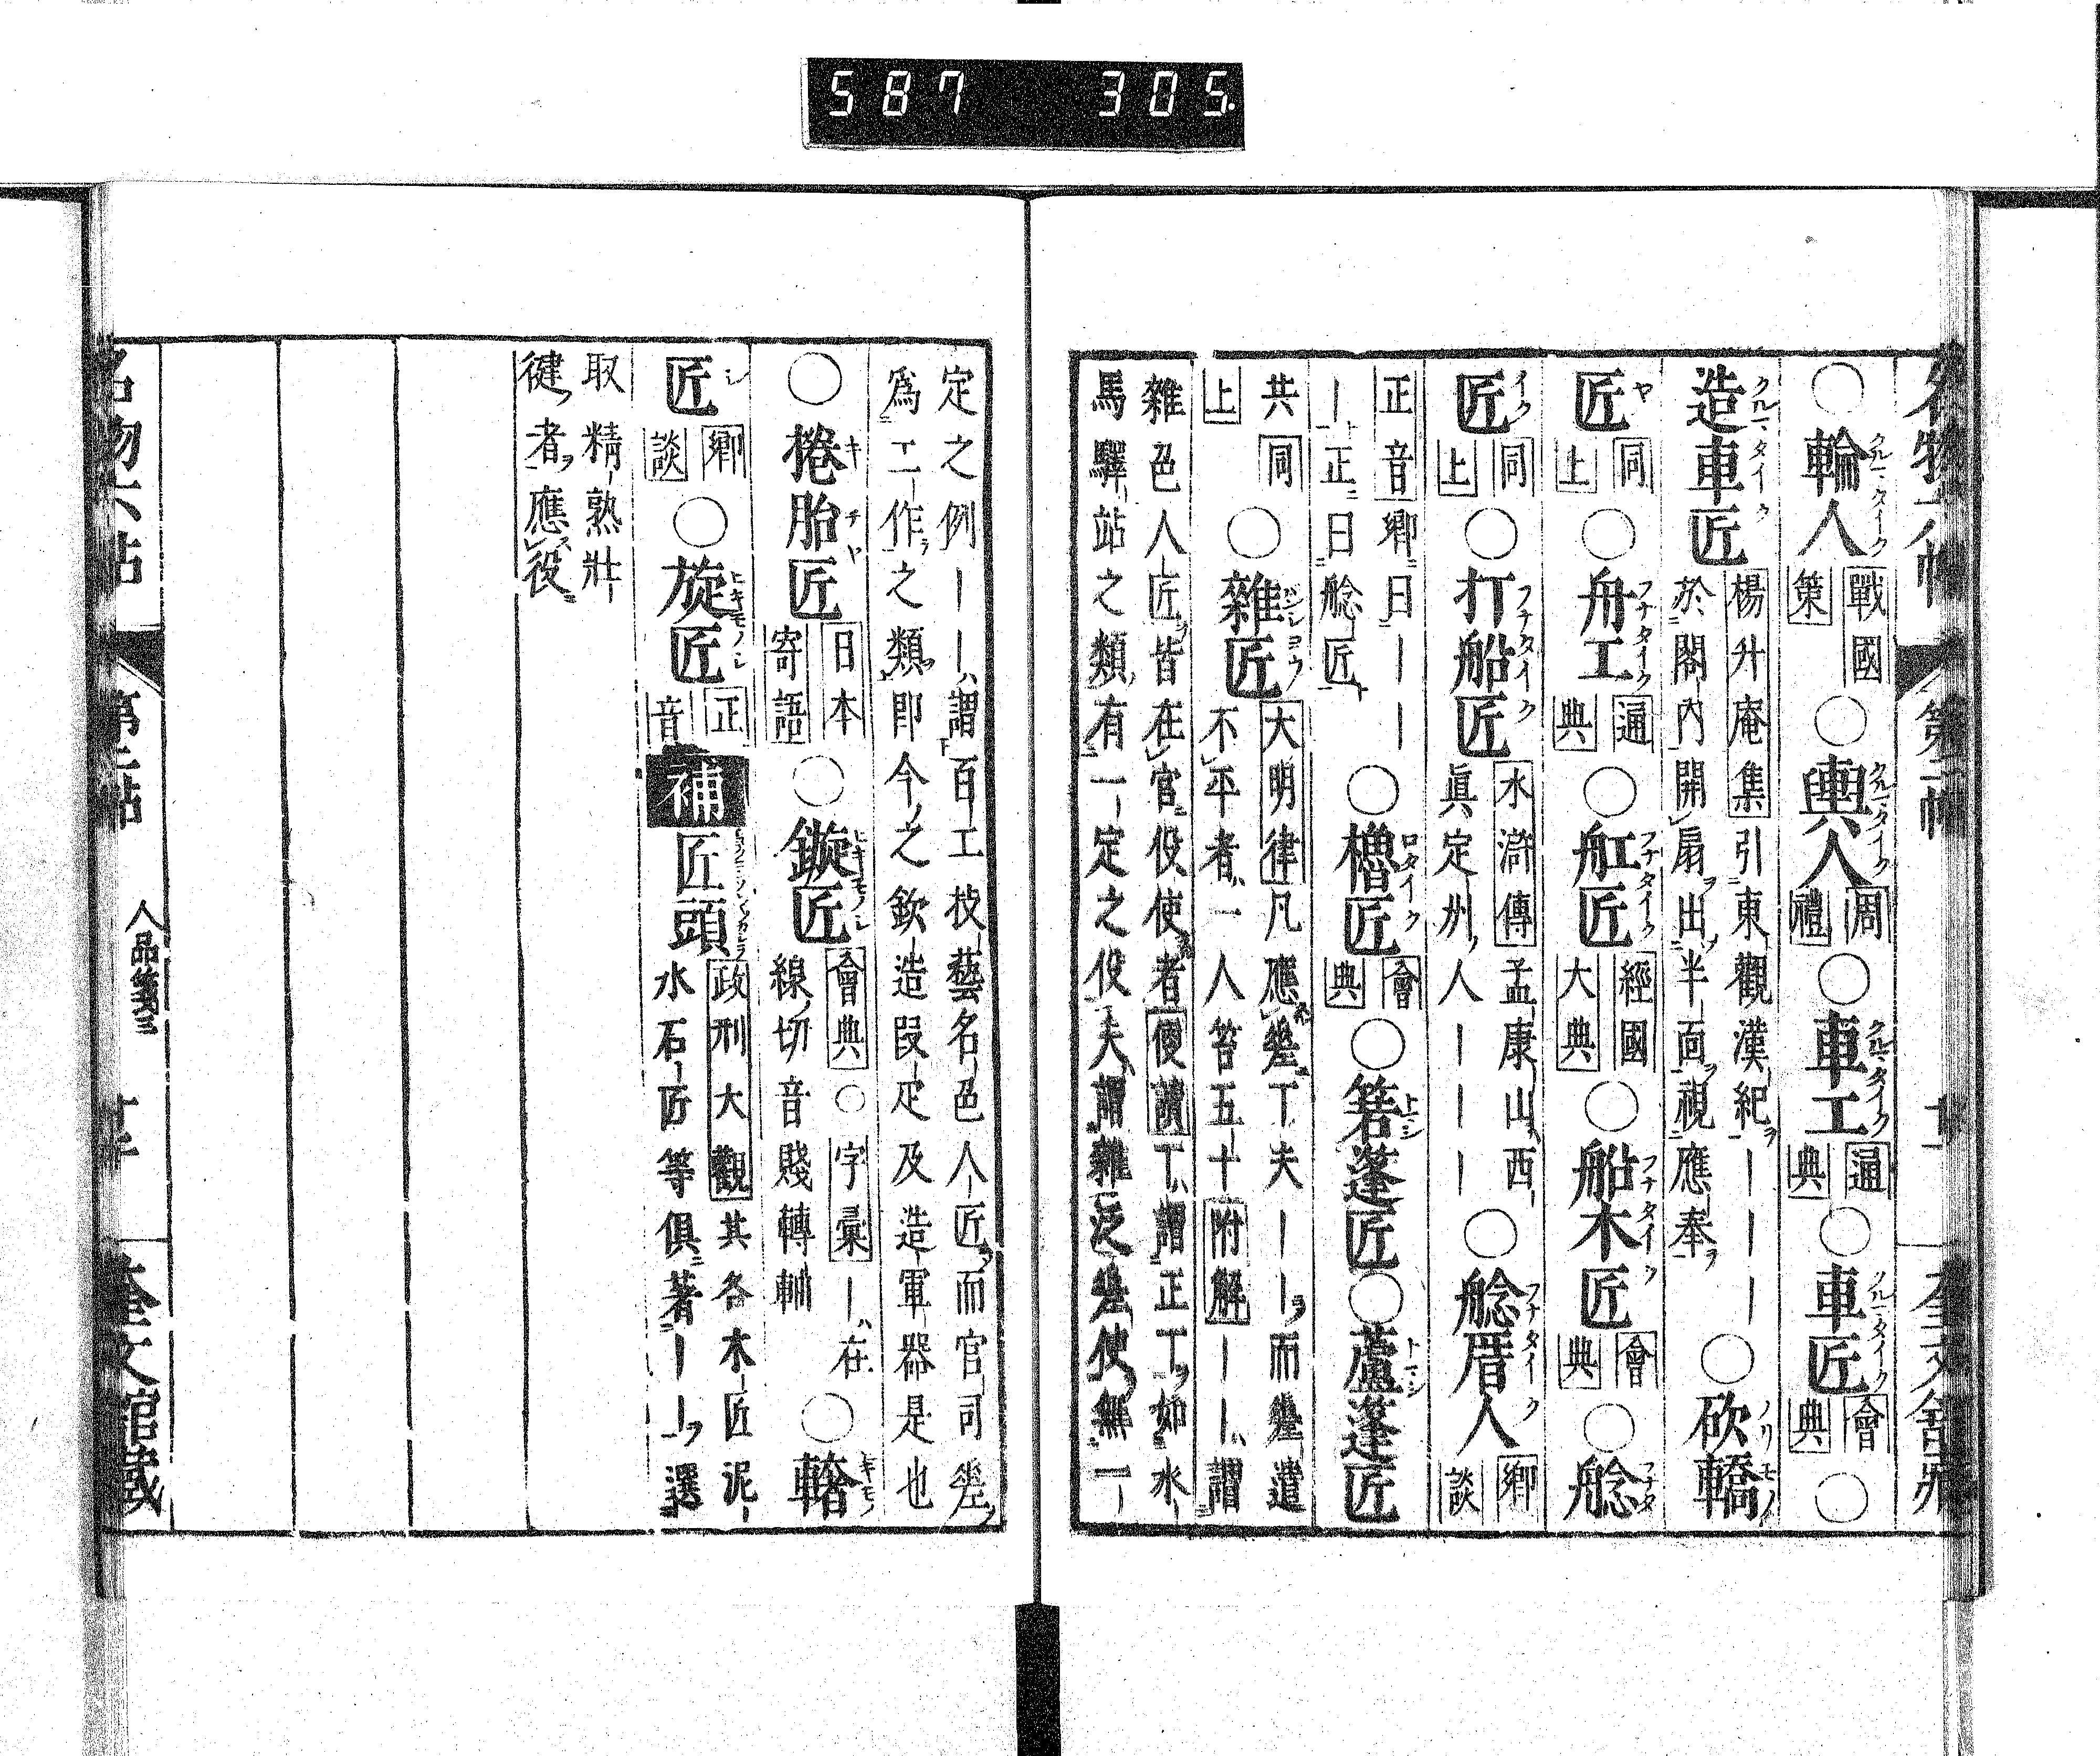 587 305.
○輪人戰國策○輿人周禮○車工通典○車匠會典○
造車匠楊升庵集引東觀漢紀｜｜｜
於閣內開扇出半面視應奉○砍轎
匠同上○舟工通典○舡匠經國大典○船木匠會典○艌
匠同上○打船匠水滸傳孟康山西
眞定州人｜｜｜○艌厝人鄉談
正音鄉曰｜｜
｜正曰艌匠○櫓匠會典○箬蓬匠○蘆蓬匠
共同上○雜匠大明律凡應差丁夫｜｜而差遣
不平者一人笞五十附解｜｜謂
雜色人匠皆在官役使者便讀丁謂正丁如水
馬驛站之類有一定之役夫謂雜泛差使無一
定之例｜｜謂百工技藝名色人匠而官司差
爲工作之類即今之欽造段疋及造軍器是也
○捲胎匠日本寄語○鏇匠會典○字彙｜在
線切音賤轉軸○轄
匠鄉談○旋匠正音補匠頭政刑大觀其各木匠泥
水石匠等俱著｜｜選
取精熟壯
健者應役
名物六帖 第二帖 人品箋三 奎文館藏